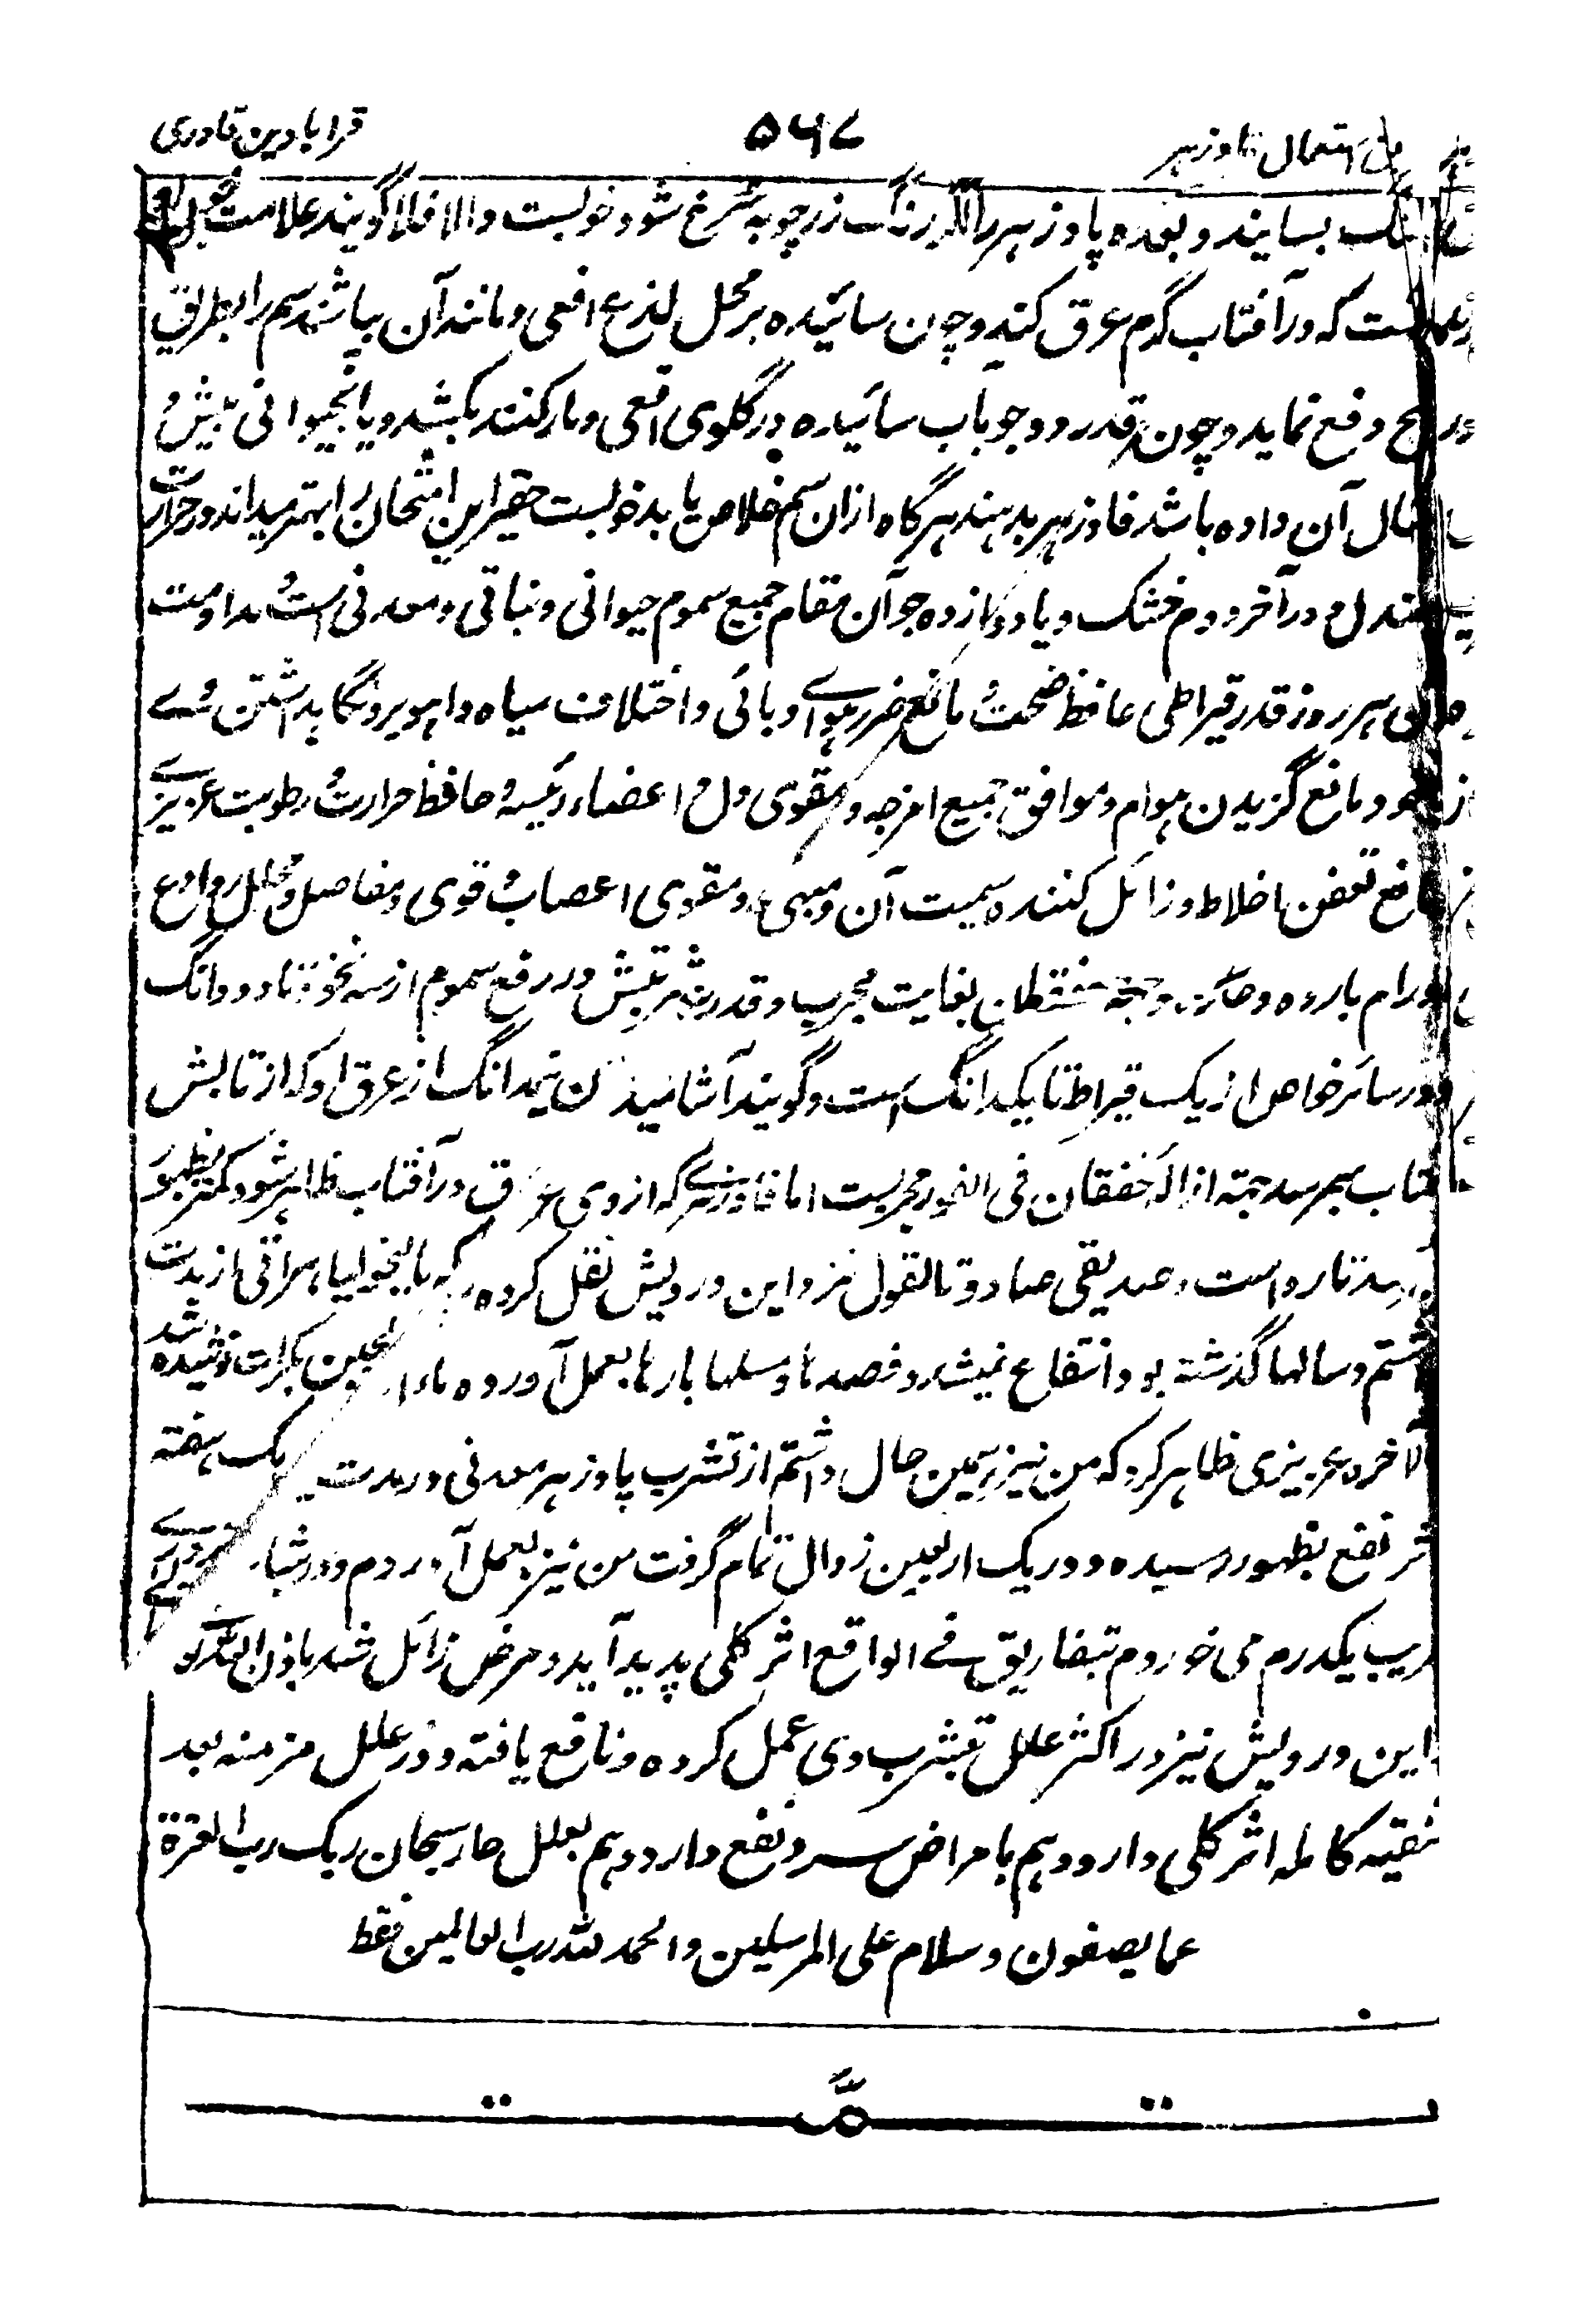 قرابادین قادری ۵۶۷ استعمال پادزهر
بسایند و بعده پادزهر را اگر رنگ زرچوبه سرخ شود خوبست والا فلا گویند علامت
ست که در آفتاب گرم عرق کند و چون سائیده بر محل لذع افعی و مانند آن بپاشند سم را بطریق
دفع نماید و چون قدر دو جو بآب سائیده در گلوی افعی و مار کنند بکشد و یا بحیوانی بیش و
آن داده باشد فادزهر بدهند هرگاه ازان سم خلاص یابد خوبست حقیر این امتحان را بهتر میداند و در حرارت
معتدل و در آخر دوم خشک و یا دوازده جو آن مقام جمیع سموم حیوانی و نباتی و معدنی است و مداومت
هر روز قدر قیراطی حافظ صحت و مانع ضرر هوای وبائی و اختلاف میاه و اهویه و نگاهداشتن وے
و مانع گزیدن هوام و موافق جمیع امزجه و مقوی دل و اعضاء رئیسه و حافظ حرارت و رطوبت غریزے
تعفن اخلاط و زائل کننده سمیت آن و مبهی و مقوی اعصاب و قوی و مفاصل و محلل و رادع
اورام بارده و حاره و جهة خفقان بغایت مجرب و قدر شربتش در رفع سموم از سه نخود تا دو دانگ
و در سائر خواص از یک قیراط تا یکدانگ است و گویند آشامیدن نیمدانگ از عرق او که از تابش
آفتاب بهم رسد جهته ازاله خفقان فی الفور مجربست اما فادزهرے که از وی عرق در آفتاب ظاهر شود کمتر بظهور
رسد نادر است و صدیقی صادق القول نزد این درویش نقل کرده که مالیخولیاء مراقی از مدت
داشتم و سالها گذشته بود انتفاع نمیشد و فصدها و مسلها بارها بعمل آورده ماء الجبن بکرات نوشیده شد
بالاخره عزیزی ظاهر کرد که من نیز همین حال داشتم از تشرب پادزهر معدنی در مدت یک هفته
اثر نفع بظهور رسیده و در یک اربعین زوال تمام گرفت من نیز بعمل آوردم و در
قریب یکدرم می خوردم بتفاریق فے الواقع اثر کلی پدید آید و مرض زائل شد باذن الله
و این درویش نیز در اکثر علل بتشرب وی عمل کرده و نافع یافته و در علل مزمنه بعد
تنقیه کامله اثر کلی دارد و هم بامراض سرد نفع دارد و هم بعلل حار سبحان ربک رب العزة
عما یصفون و سلام علی المرسلین و الحمد لله رب العالمین فقط
تمت